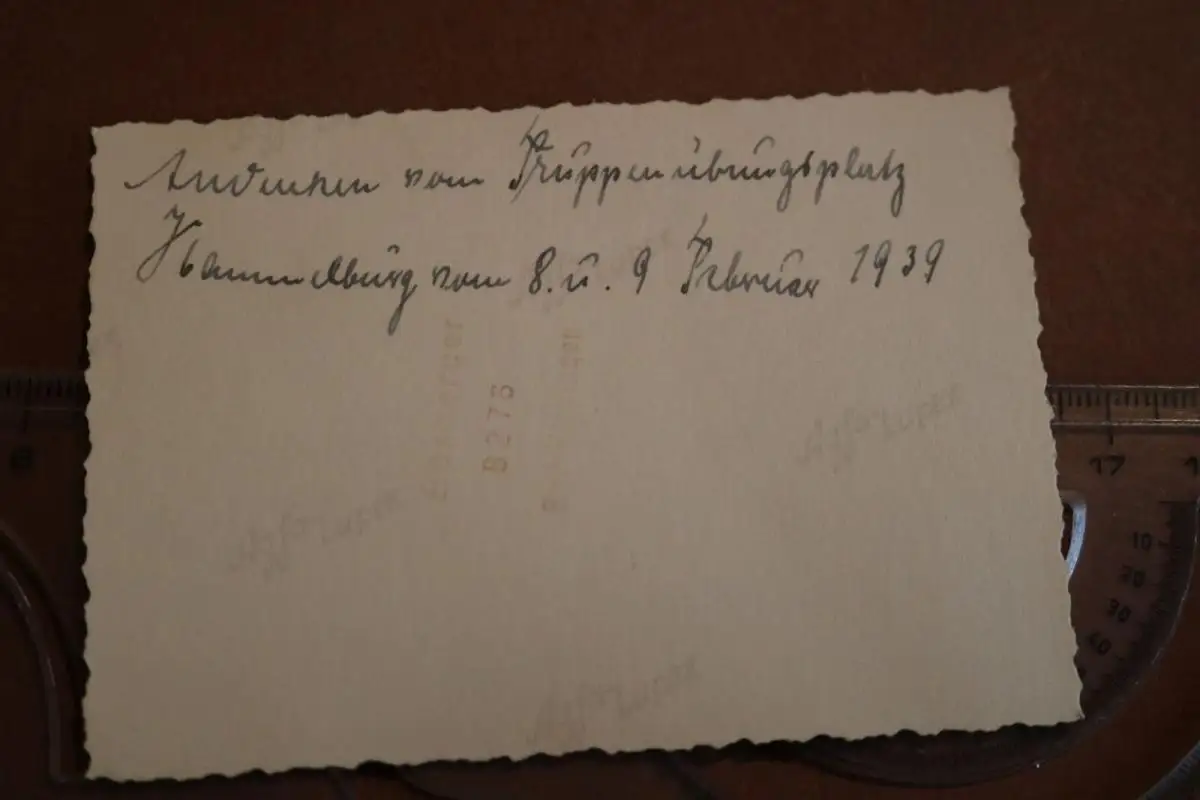 Andenken vom Truppenübungsplatz
Hammelburg vom 8. u. 9 Februar 1939
B276
Agfa-Lupex
Agfa-Lupex
Agfa-Lupex
17
10
20
30
40